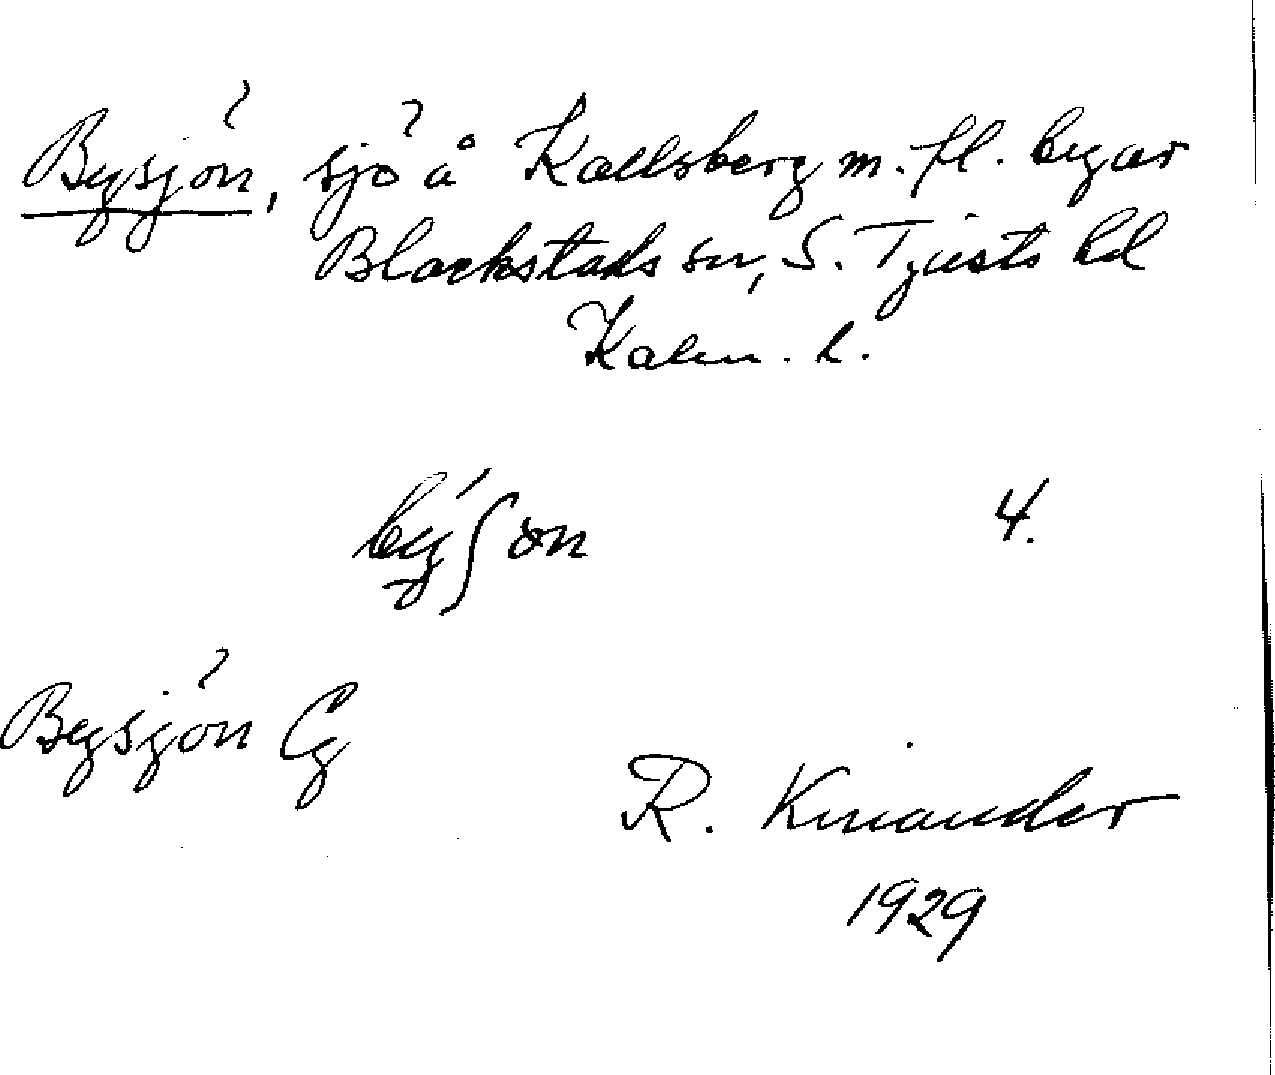 Bysjön, sjö å Kallsberg m. fl. byar
Blackstads sn, S. Tjusts hd
Kalm. l.
by´ʃɷn 4.
Bysjön Cg
R. Kinander
1929